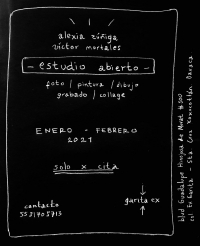 alexia zúñiga
víctor mortales
- estudio abierto -
foto / pintura / dibujo
grabado / collage
ENERO - FEBRERO
2021
solo x cita
contacto
5531405713
garita ex
blvd Guadalupe Hinojosa de Murat #500
col. Ex Garita - Sta. Cruz Xoxocotlán Oaxaca